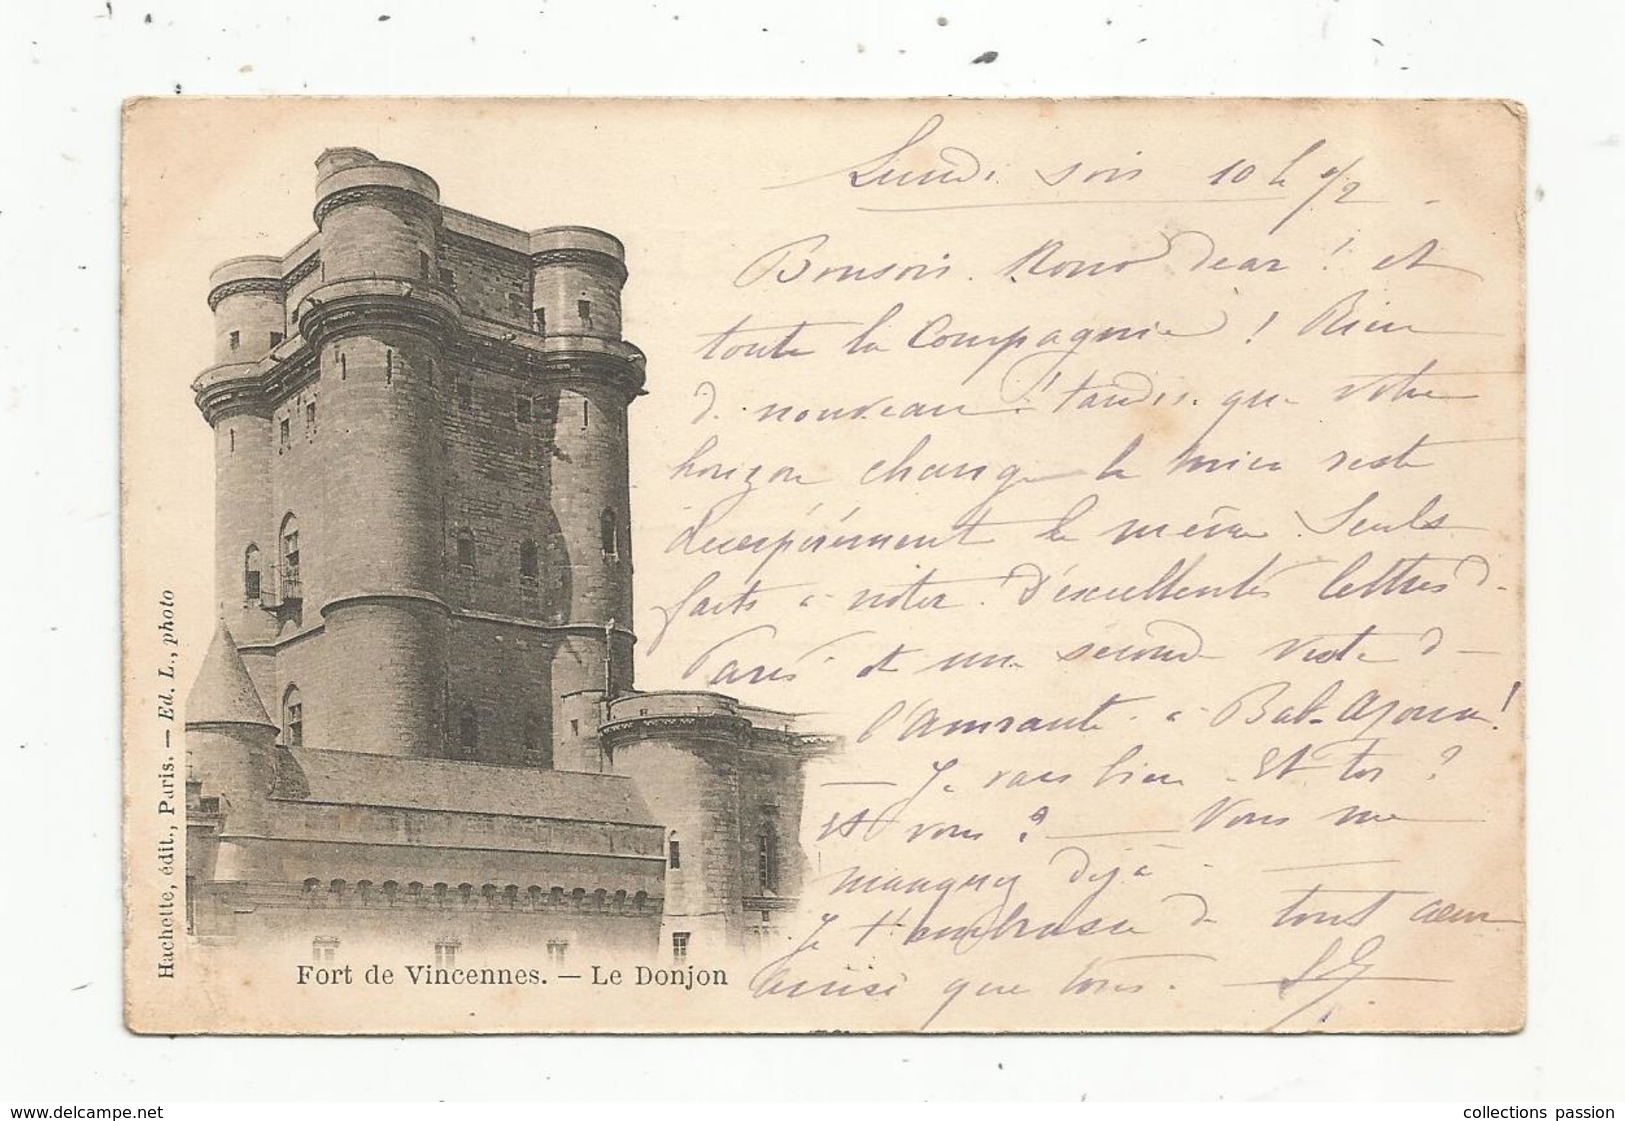 Lundi soir 10 h 1/2
Bonsoir Nono dear ! et
toute la Compagnie ! Rien
de nouveau ! tandis que votre
horizon change le mien reste
désespérément le même. Seuls
faits à noter : d'excellentes lettres de
Paris et une seconde visite de
l'Amirante à Bab-Azoun !
— Je vais bien. Et toi ?
et vous ? — Vous me
manquez déjà.
Je t'embrasse de tout cœur
ainsi que tous.
Fort de Vincennes. — Le Donjon
Hachette, édit., Paris. — Ed. L., photo
www.delcampe.net
collections passion